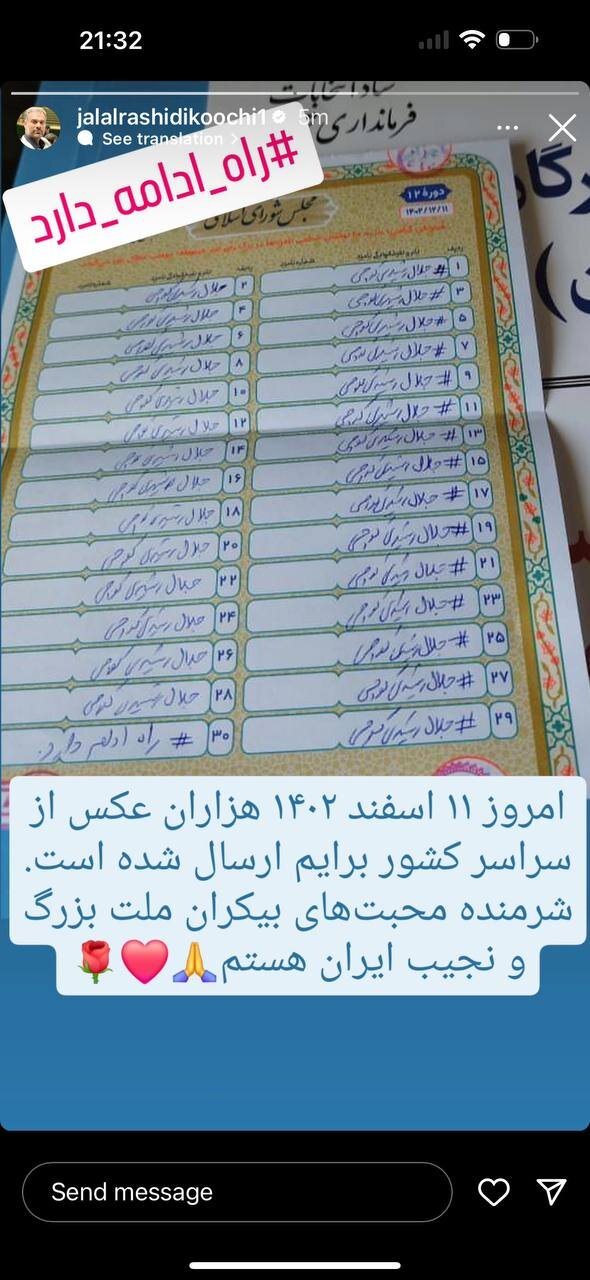 21:32
jalalrashidikoochi1 5m
See translation
ستاد انتخابات
فرمانداری
#راه_ادامه_دارد
دورهٔ ۱۲
۱۴۰۲/۱۲/۱۱
مجلس شورای اسلامی
۱ #جلال رشیدی کوچی
۲ جلال رشیدی کوچی
۳ #جلال رشیدی کوچی
۴ جلال رشیدی کوچی
۵ #جلال رشیدی کوچی
۶ جلال رشیدی کوچی
۷ #جلال رشیدی کوچی
۸ جلال رشیدی کوچی
۹ #جلال رشیدی کوچی
۱۰ جلال رشیدی کوچی
۱۱ #جلال رشیدی کوچی
۱۲ جلال رشیدی کوچی
۱۳ #جلال رشیدی کوچی
۱۴ جلال رشیدی کوچی
۱۵ #جلال رشیدی کوچی
۱۶ جلال رشیدی کوچی
۱۷ #جلال رشیدی کوچی
۱۸ جلال رشیدی کوچی
۱۹ #جلال رشیدی کوچی
۲۰ جلال رشیدی کوچی
۲۱ #جلال رشیدی کوچی
۲۲ جلال رشیدی کوچی
۲۳ #جلال رشیدی کوچی
۲۴ جلال رشیدی کوچی
۲۵ #جلال رشیدی کوچی
۲۶ جلال رشیدی کوچی
۲۷ #جلال رشیدی کوچی
۲۸ جلال رشیدی کوچی
۲۹ #جلال رشیدی کوچی
۳۰ # راه ادامه دارد.
امروز ۱۱ اسفند ۱۴۰۲ هزاران عکس از
سراسر کشور برایم ارسال شده است.
شرمنده محبت‌های بیکران ملت بزرگ
و نجیب ایران هستم🙏❤️🌹
Send message